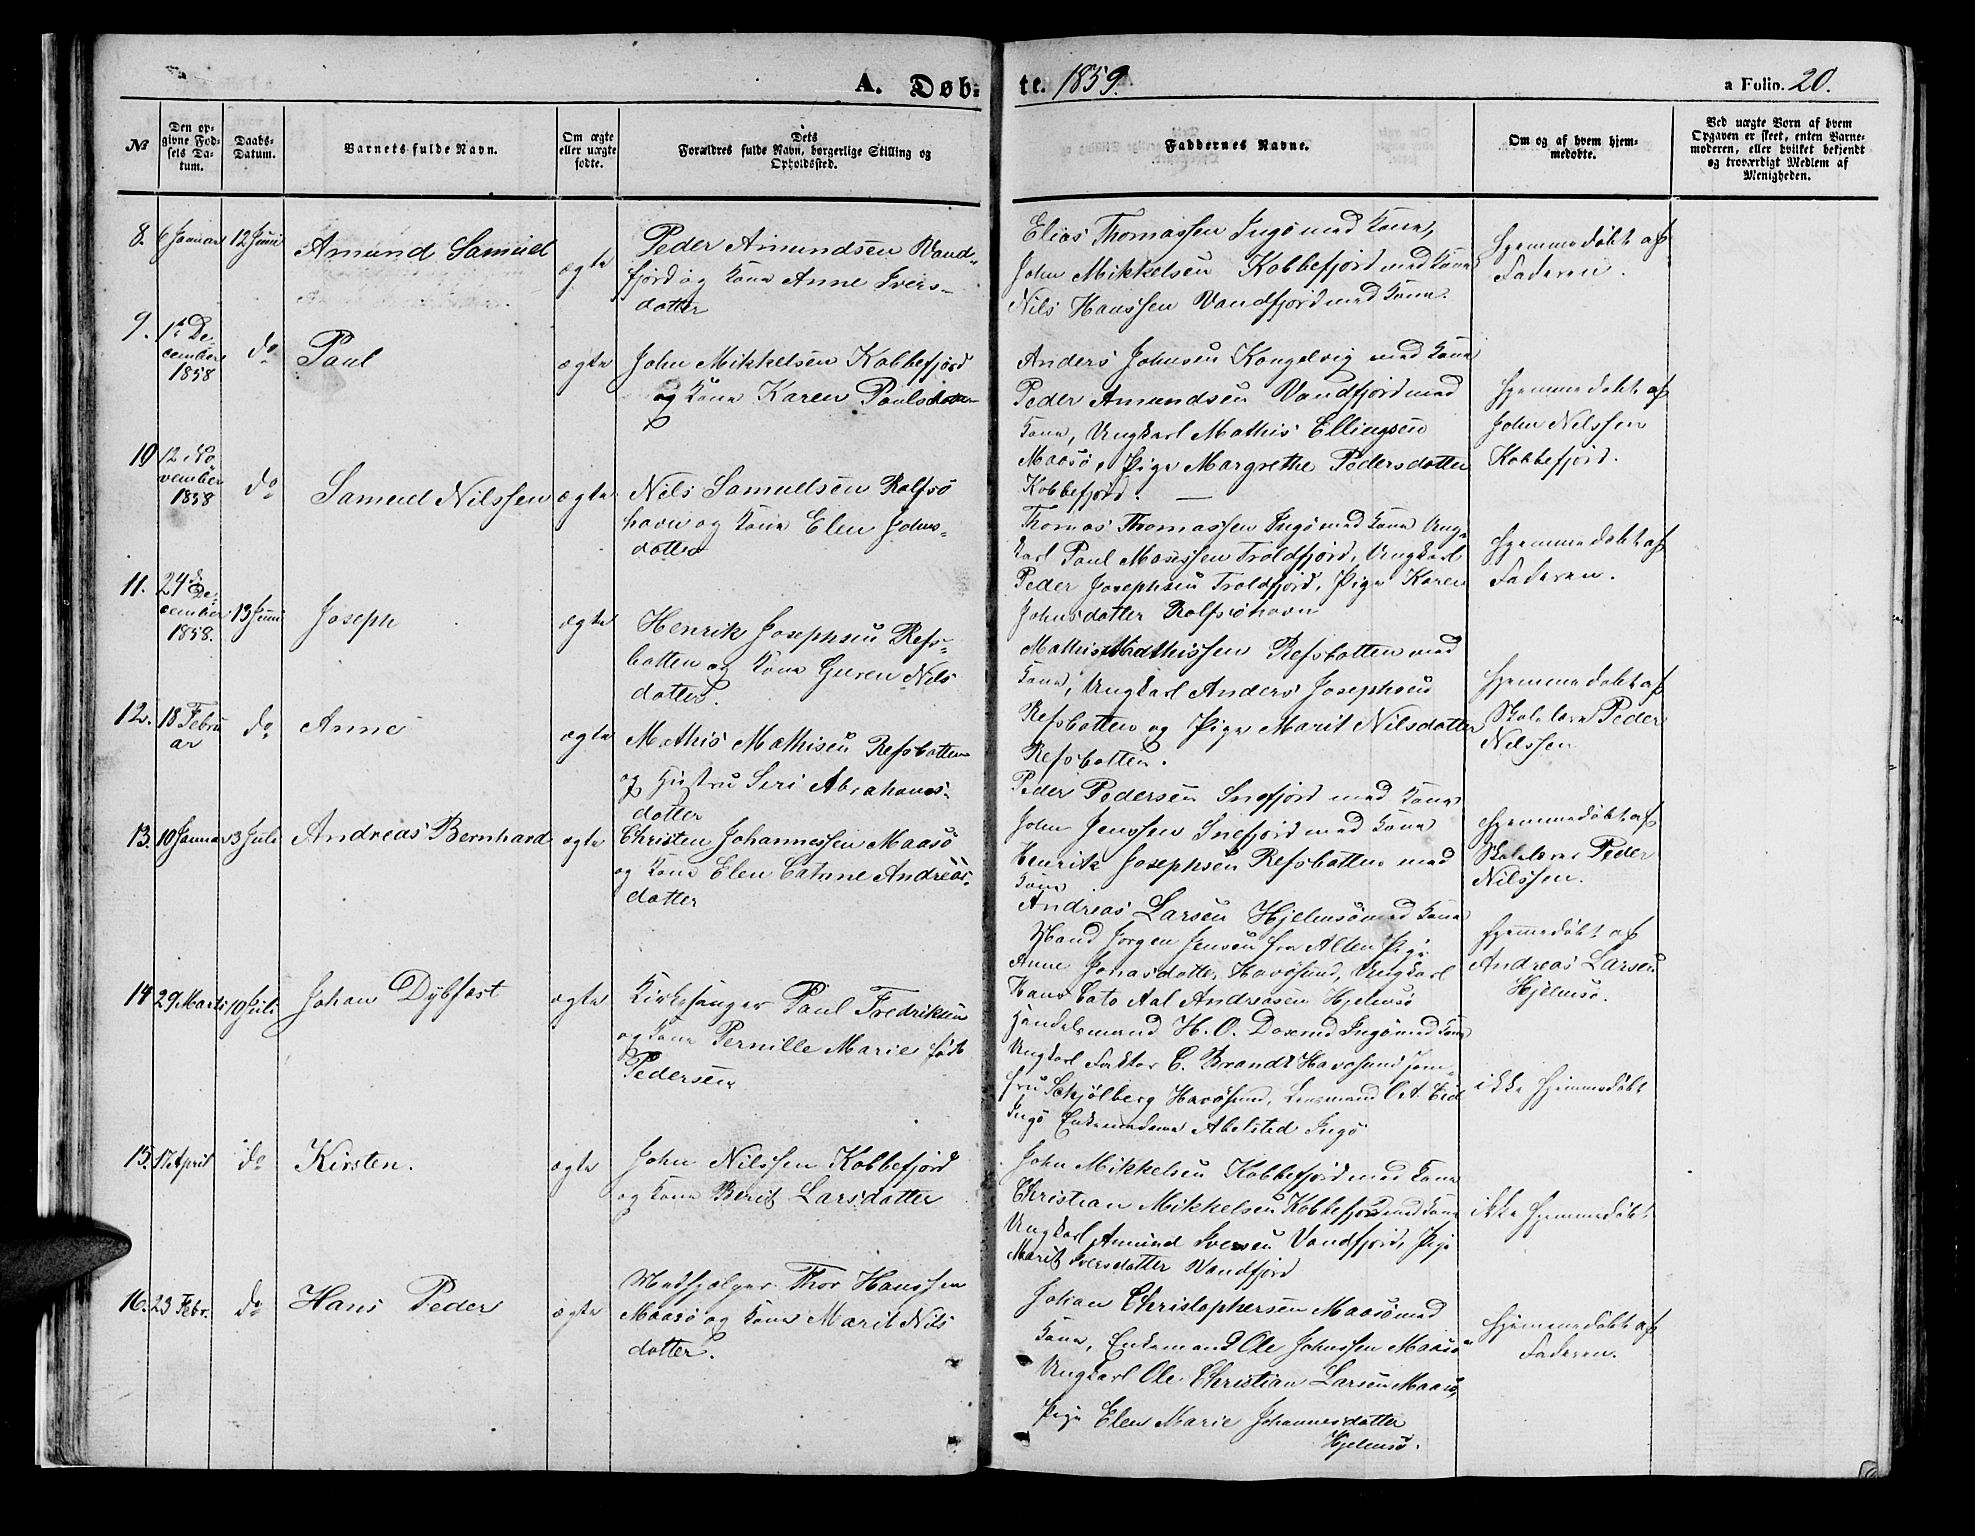 A. Døb-
te. 1859.
a Folio. 20.
No
Den op-
givne Fød-
sels Da-
tum.
Daabs-
Datum.
Barnets fulde Navn.
Om ægte
eller uægte
fødte.
Dets
Forældres fulde Navn, borgerlige Stilling og
Opholdssted.
Faddernes Navne.
Om og af hvem hjem-
medøbte.
Ved uægte Børn af hvem
Opgaven er skeet, enten Barne-
moderen, eller hvilket bekjendt
og troværdigt Medlem af
Menigheden.
8. 6 Januar 12 Juni Amund Samuel ægte
Peder Amundsen Vand-
fjord og Kone Anne Ivers-
datter
Elias Thomassen Ingø med Kone,
John Mikkelsen Kobbefjord med Kone
Nils Hanssen Vandfjord med Kone.
Hjemmedøbt af
Faderen.
9. 1ste De-
cember
1858
do Paul ægte
John Mikkelsen Kobbefjord
og Kone Karen Paulsdatter
Anders Johnsen Kongelvig med Kone
Peder Amundsen Vandfjord med
Kone, Ungkarl Mathis Ellingsen
Maasø, Pige Margrethe Pedersdatter
Kobbefjord.
Hjemmedøbt af
John Nilssen
Kobbefjord.
10 12 No
vember
1858
do Samuel Nilssen ægte
Nils Samuelsen Rolfsø
havn og Kone Elen Johns-
datter
Thomas Thomassen Ingø med Kone Ung-
karl Paul Mosessen Troldfjord, Ungkarl
Peder Josephsen Troldfjord, Pige Karen
Johnsdatter Rolfsøhavn
Hjemmedøbt af
Faderen.
11. 24de De-
cember
1858.
13 Juni Joseph ægte
Henrik Josephsen Refs-
botten og Kone Guren Nils
datter.
Mathis Mathissen Refsbotten med
Kone, Ungkarl Anders Josephsen
Refsbotten og Pige Marit Nilsdatter
Refsbotten.
Hjemmedøbt af
Skolelærer Peder
Nilssen
12. 18 Febru
ar
do Anne ægte
Mathis Mathisen Refsbotten
og Hustru Siri Abrahams-
datter
Peder Pedersen Snefjord med Kone
John Jenssen Snefjord med Kone
Henrik Josephsen Refsbotten med
Kone
Hjemmedøbt af
Skolelærer Peder
Nilssen.
13. 10 Januar 3 Juli Andreas Bernhard ægte
Christen Johannessen Maasø
og Kone Elen Catrine Andreas-
datter
Andreas Larsen Hjelmsø med Kone
Mand Jørgen Jensen fra Alten Pige
Anne Jonasdatter, Havøsund, Ungkarl
Hans Cato Aal Andreasen Hjelmsø
Hjemmedøbt af
Andreas Larsen
Hjelmsø.
14 29 Marts 10 Juli Johan Dybfest ægte
Kirkesanger Paul Fredriksen
og Kone Pernille Marie født
Pedersen
Handelsmand H. O. Ingø med Kone
Ungkarl Faktor C. Brandt Havøsund Jom-
fru Schjølberg Havøsund, Lensmand
Ingø Enkemadame Abelsted Ingø
ikke hjemmedøbt
15. 17 April do Kirsten. ægte
John Nilssen Kobbefjord
og Kone Berit Larsdatter
John Mikkelsen Kobbefjord med Kone
Christian Mikkelsen Kobbefjord med Kone
Ungkarl Amund Iversen Vandfjord, Pige
Marit Iversdatter Vandfjord
ikke hjemmedøbt
16. 23 Febr. do Hans Peder ægte
Medhjælper Thor Hanssen
Maasø og Kone Marit Nils
datter.
Johan Christophersen Maasø med
Kone, Enkemand Ole Johnssen Maasø
Ungkarl Ole Christian Larsen Maasø,
Pige Elen Marie Johannesdatter
Hjelmsø.
Hjemmedøbt af
Faderen.